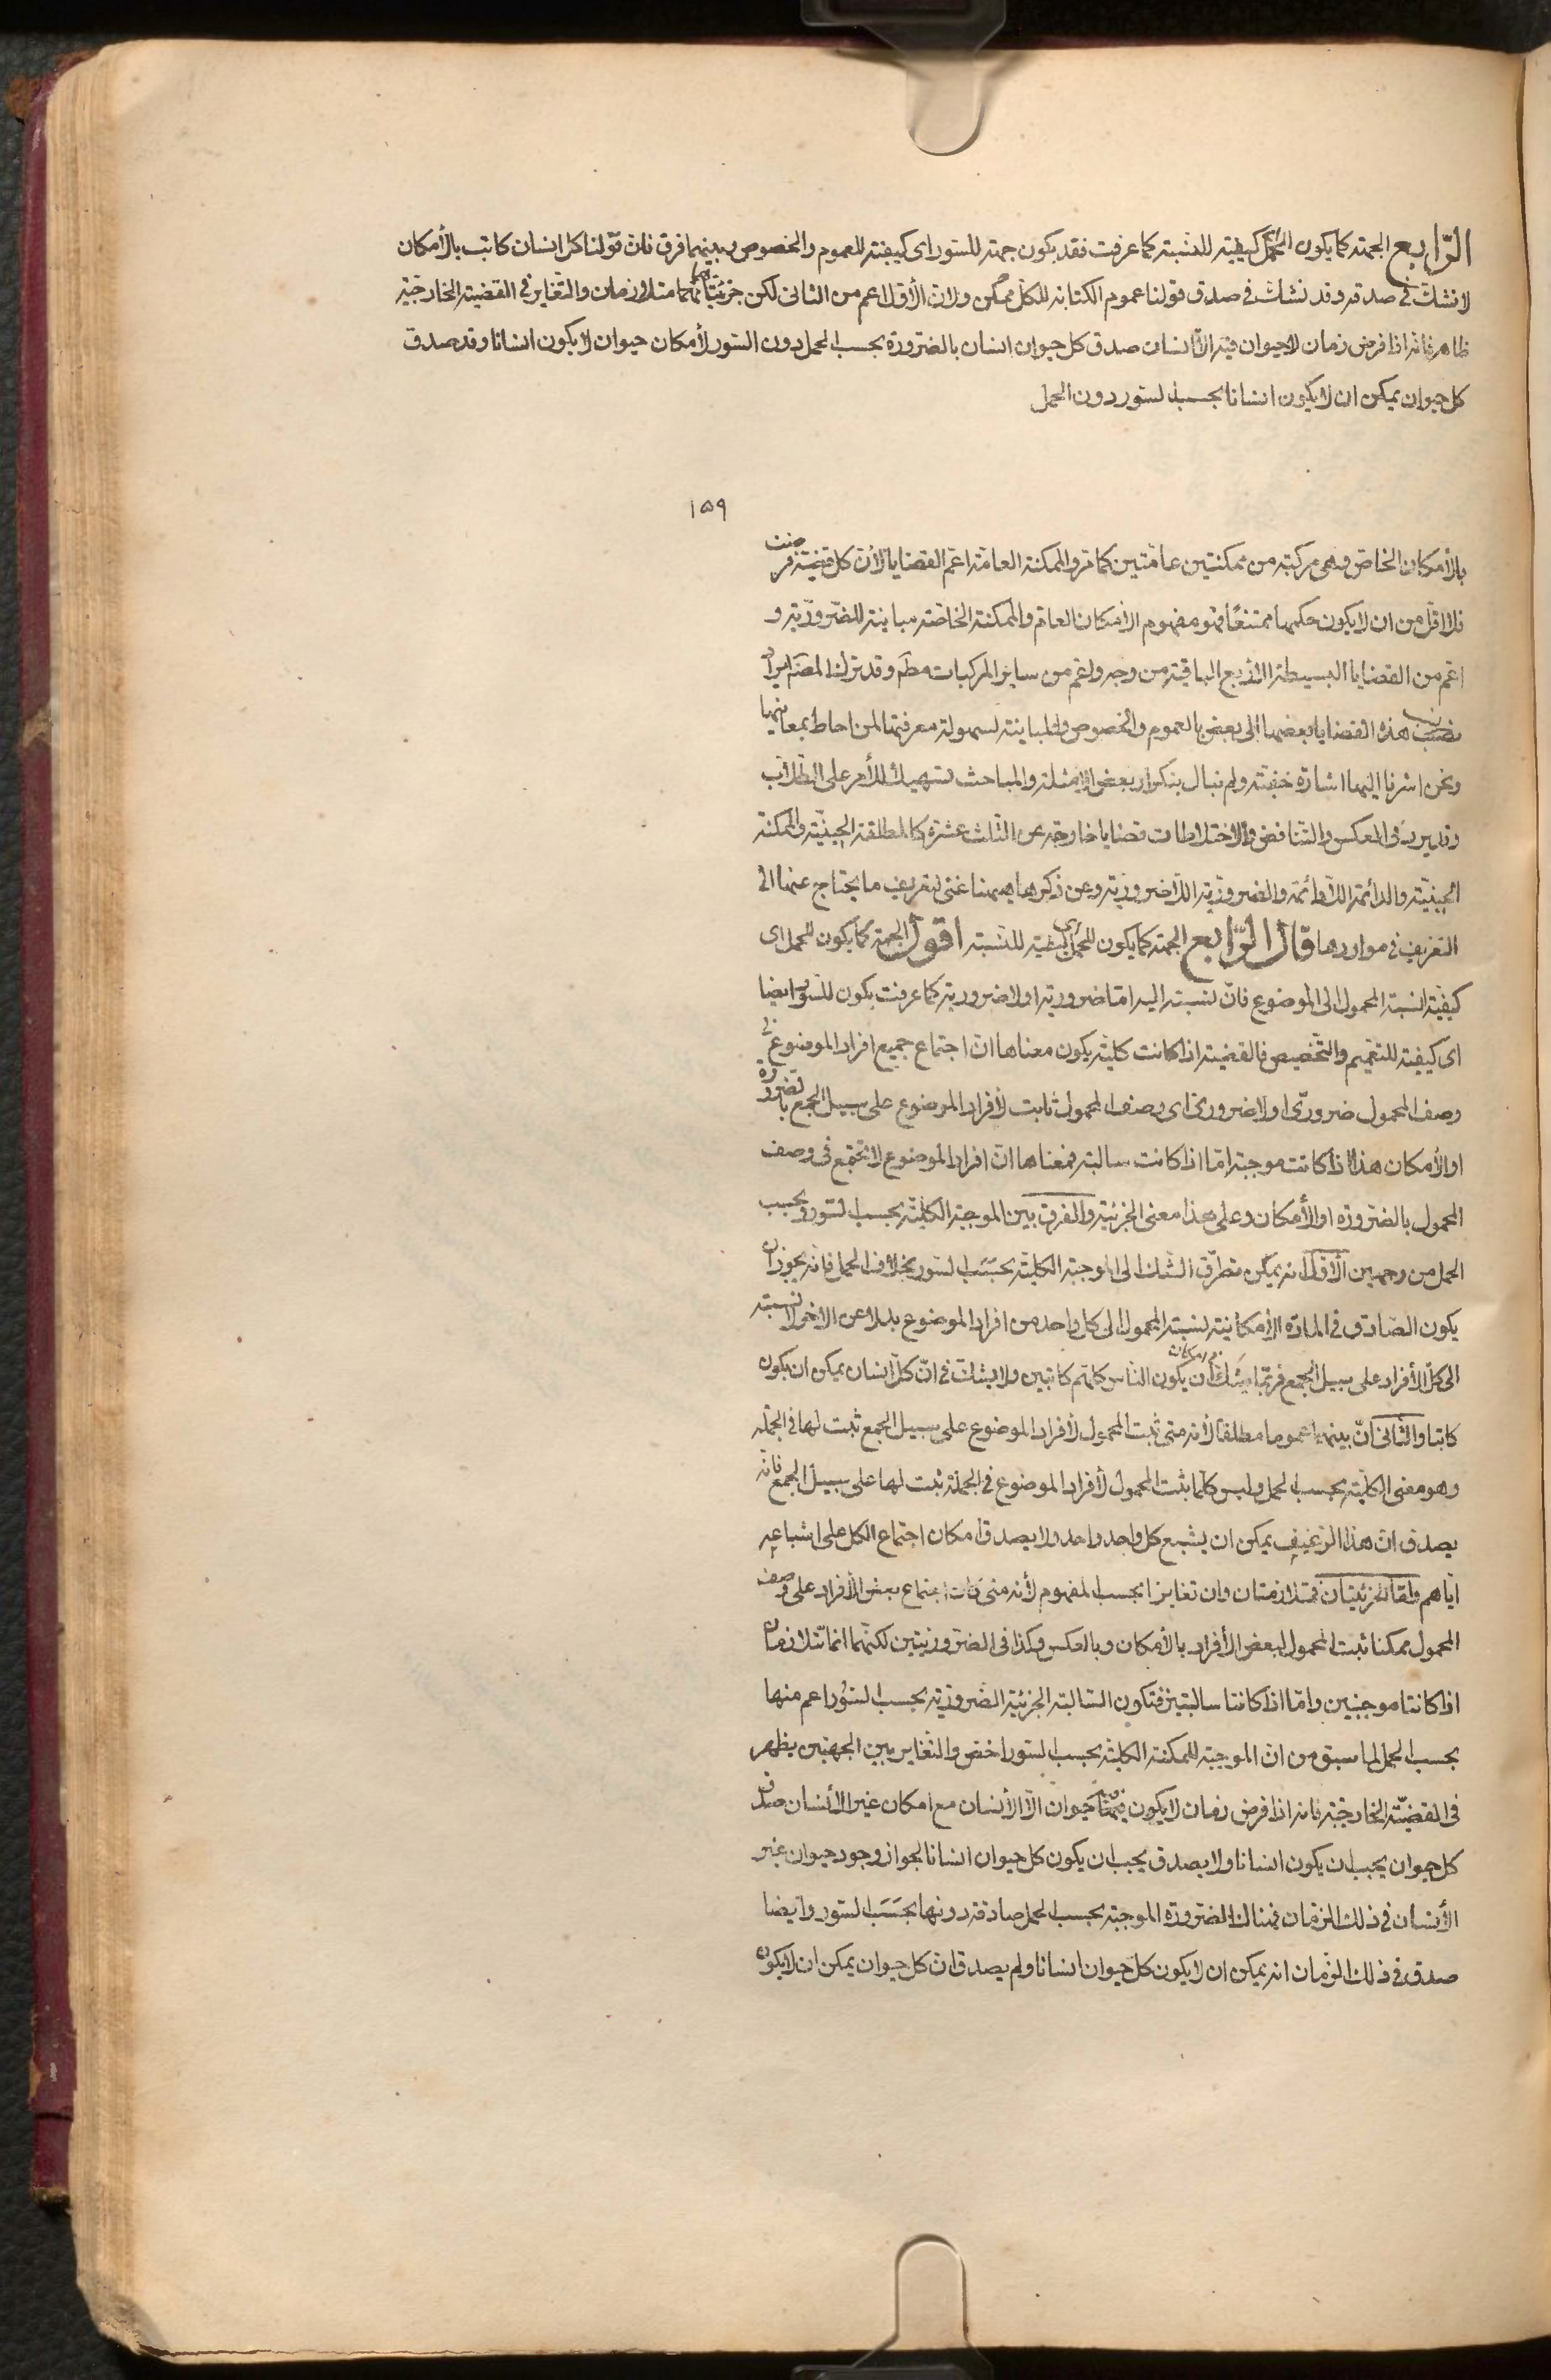 الرابع الجهة كما يكون للحمل اى كيفية للنسبة كما عرفت فقد يكون جهة للسور اى كيفية للعموم والخصوص وبينهما فرق فان قولنا كل انسان كاتب بالأمكان
لا نشك فى صدقه وقد نشك فى صدق قولنا عموم الكتابة للكل ممكن ولان الأول اعم من الثانى لكن جزئيتاهما متلازمان والتغاير فى القضية الخارجية
ظاهر فانه اذا فرض زمان لا حيوان فيه الا انسان صدق كل حيوان انسان بالضرورة بحسب الحمل دون السور لأمكان حيوان لا يكون انسانا وقد صدق
كل حيوان يمكن ان لا يكون انسانا بحسب السور دون الحمل
١٥٩
بالأمكان الخاص وهى مركبة من ممكنتين عامتين كما مر والممكنة العامة اعم القضايا لأن كل قضية فرضت
فلا اقل من ان لا يكون حكمها ممتنعًا فهو مفهوم الأمكان العام والممكنة الخاصة مباينة للضرورية و
اعم من القضايا البسيطة الأربع الباقية من وجه واعم من ساير المركبات مطم وقد ترك المصنم ايراد
نسب هذه القضايا بعضها الى بعض بالعموم والخصوص والمباينة لسهولة معرفتها لمن احاط بمعانيها
ونحن اشرنا اليها اشارة خفيفة ولم نبال بتكرار بعض الأمثلة والمباحث لتسهيل الأمر على الطلاب
وقد يرد فى العكس والتناقض والاختلاطات قضايا خارجة عن الثلث عشرة كالمطلقة الحينية والممكنة
الحينية والدائمة اللادائمة والضرورية اللاضرورية وعن ذكرها هيهنا غنى لتعريف ما يحتاج عنها الى
التعريف فى مواردها قال الرابع الجهة كما يكون للحمل اى كيفية للنسبة اقول الجهة كما يكون للحمل اى
كيفية لنسبة المحمول الى الموضوع فان نسبته اليه اما ضرورية او لا ضرورية كما عرفت يكون للسور ايضا
اى كيفية للتعميم والتخصيص فالقضية اذا كانت كلية يكون معناها ان اجتماع جميع افراد الموضوع فى
وصف المحمول ضرورى او لا ضرورى اى وصف المحمول ثابت لأفراد الموضوع على سبيل الجمع بالضرورة
او الأمكان هذا اذا كانت موجبة اما اذا كانت سالبة فمعناها ان افراد الموضوع لا تجتمع فى وصف
المحمول بالضرورة او الأمكان وعلى هذا معنى الجزئية والفرق بين الموجبة الكلية بحسب السور وبحسب
الحمل من وجهين الأول انه يمكن تطرق الشك الى الموجبة الكلية بحسب السور بخلاف الحمل فانه يجوز ان
يكون الصادق فى المادة الأمكانية نسبة المحمول الى كل واحد من افراد الموضوع بدلا عن الاخر لا نسبته
الى كل الأفراد على سبيل الجمع فربما يشك فى امكان ان يكون الناس كلهم كاتبين ولا يشك فى ان كل انسان يمكن ان يكون
كاتبا والثانى ان بينهما عموما مطلقا لأنه متى ثبت المحمول لأفراد الموضوع على سبيل الجمع ثبت لها فى الجملة
وهو معنى الكلية بحسب الحمل وليس كلما يثبت المحمول لأفراد الموضوع فى الجملة ثبت لها على سبيل الجمع فانه
يصدق ان هذا الرغيف يمكن ان يشبع كل واحد واحد ولا يصدق امكان اجتماع الكل على اشباعه
اياهم واما الجزئيتان فمتلازمتان وان تغايرا بحسب المفهوم لأنه متى كان اجتماع بعض الأفراد على وصف
المحمول ممكنا ثبت المحمول لبعض الأفراد بالأمكان وبالعكس وكذا فى الضروريتين لكنهما انما تتلازمان
اذا كانتا موجبتين واما اذا كانتا سالبتين فتكون السالبة الجزئية الضرورية بحسب السور اعم منها
بحسب الحمل لما سبق من ان الموجبة الممكنة الكلية بحسب السور اخص والتغاير بين الجهتين يظهر
فى القضية الخارجية فانه اذا فرض زمان لا يكون فيه حيوان الا الأنسان مع امكان غير الأنسان صدق
كل حيوان يجب ان يكون انسانا ولا يصدق يجب ان يكون كل حيوان انسانا لجواز وجود حيوان غير
الأنسان فى ذلك الزمان فهناك الضرورة الموجبة بحسب الحمل صادقة دونها بحسب السور وايضا
صدق فى ذلك الزمان انه يمكن ان لا يكون كل حيوان انسانا ولم يصدق ان كل حيوان يمكن ان لا يكون